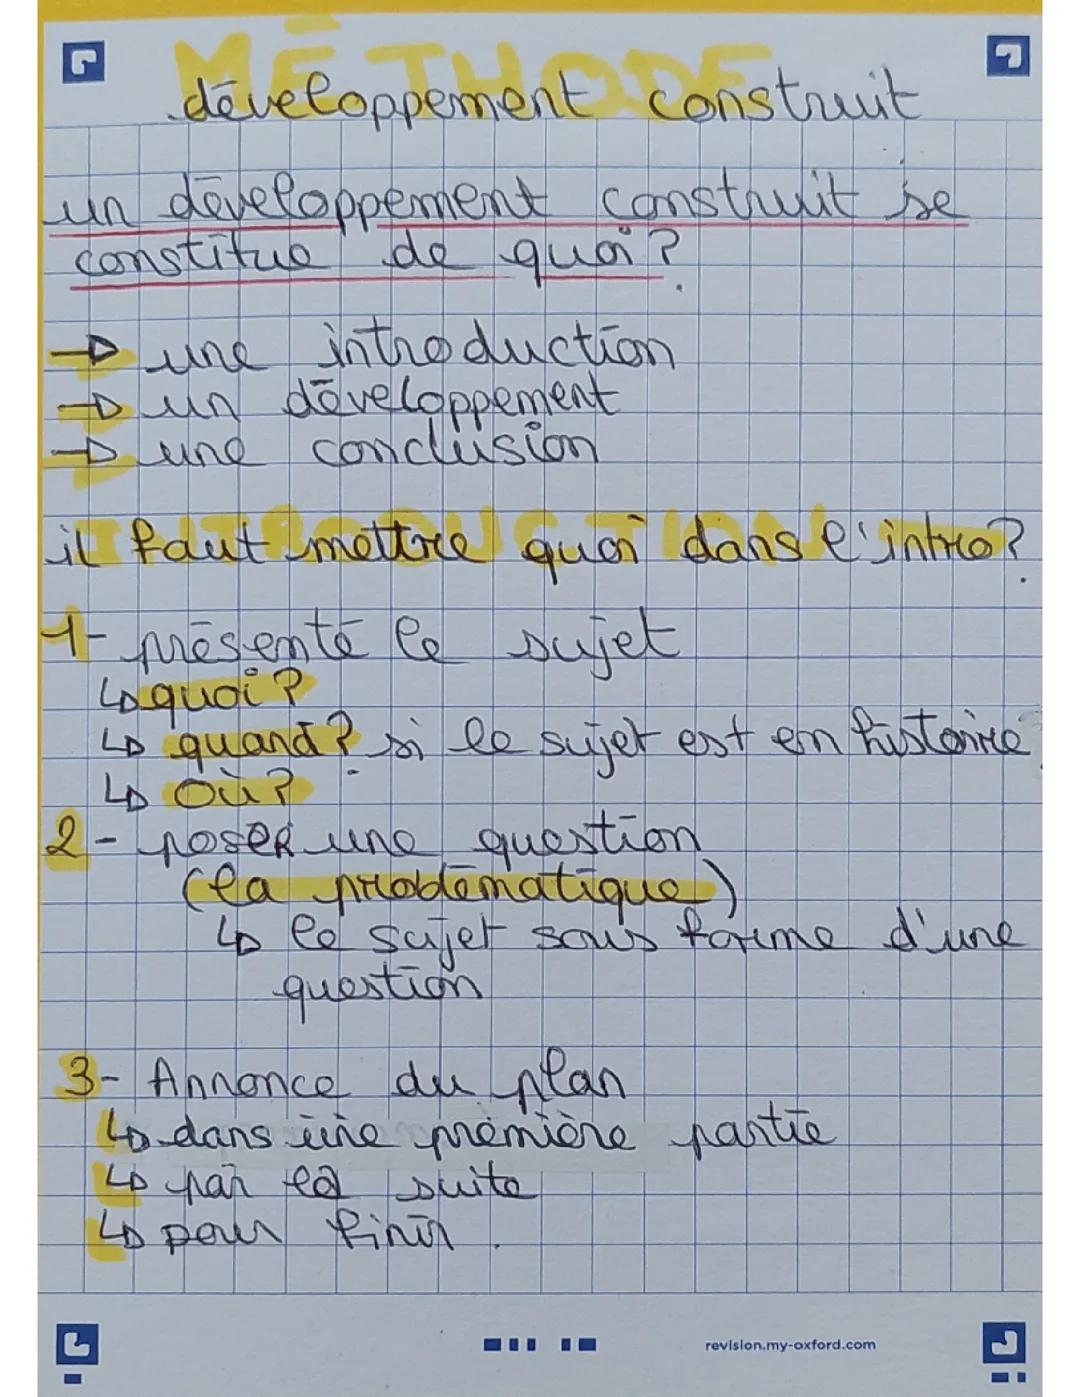 MÉTHODE
développement construit
un développement construit se
constitue de quoi ?
→ une introduction
→ un développement
→ une conclusion
INTRODUCTION
il faut mettre quoi dans l'intro ?
1- présenté le sujet
↳ quoi ?
↳ quand ? si le sujet est en histoire
↳ Où ?
2- poser une question
(la problématique)
↳ le sujet sous forme d'une
question
3- Annonce du plan
↳ dans une première partie
↳ par la suite
↳ pour finir.
revision.my-oxford.com